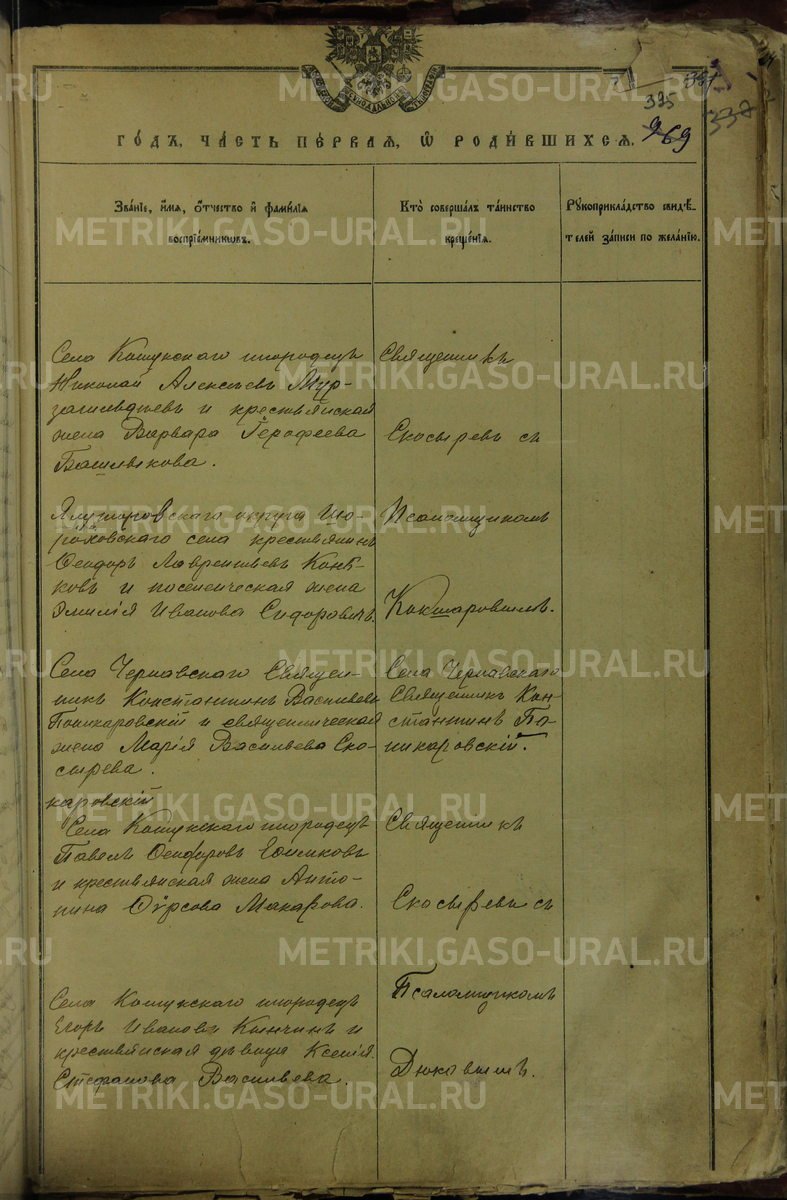 СѴНОДАЛЬНАЯ ТИПОГРАФІЯ
335
269
338
ГОДЪ, ЧАСТЬ ПЕРВАЯ, Ѡ РОДИВШИХСЯ.
Званіе, имя, отчество и фамилія
воспріемниковъ.
Кто совершалъ таинство
крещенія.
Рукоприкладство свидѣ-
телей записи по желанію.
Села Кошукскаго инородецъ
Николай Алексѣевъ Мур-
и крестьянская
жена Варвара Іерофеева
Башлыкова.
Священникъ
Скосыревъ съ
Ялуторовскаго округа Шо-
роховскаго села крестьянинъ
Ѳеодоръ Лаврентьевъ Конь-
ковъ и поселенческая жена
Эмилія Иванова Сидоровичъ.
Псаломщикомъ
Кокшаровымъ.
Села Чернавскаго Священ-
никъ Константинъ Васильевъ
Поникаровскій и священническая
жена Марія Васильева Ско-
сырева.
Села Чернавскаго
Священникъ Кон-
стантинъ По-
никаровскій.
каровскій
Села Кошукскаго инородецъ
Павелъ
и крестьянская жена Анто-
нина Ѳирсова Макарова.
Священникъ
Скосыревъ съ
Села Кошукскаго инородецъ
Егоръ Ивановъ Кынчинъ и
крестьянская дѣвица Ксенія
Стефанова Васильева.
Псаломщикомъ
Дюковымъ.
METRIKI.GASO-URAL.RU